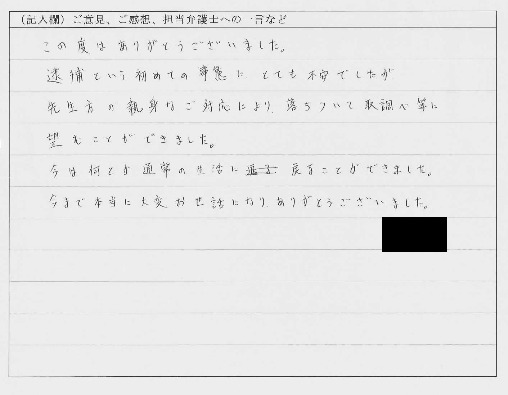 (記入欄) ご意見、ご感想、担当弁護士への一言など
この度はありがとうございました。
逮捕という初めての事態に とても不安でしたが
先生方の親身なご対応により、落ちついて取調べ等に
望むことができました。
今は何とか通常の生活に 戻ることができました。
今まで本当に大変お世話になり、ありがとうございました。